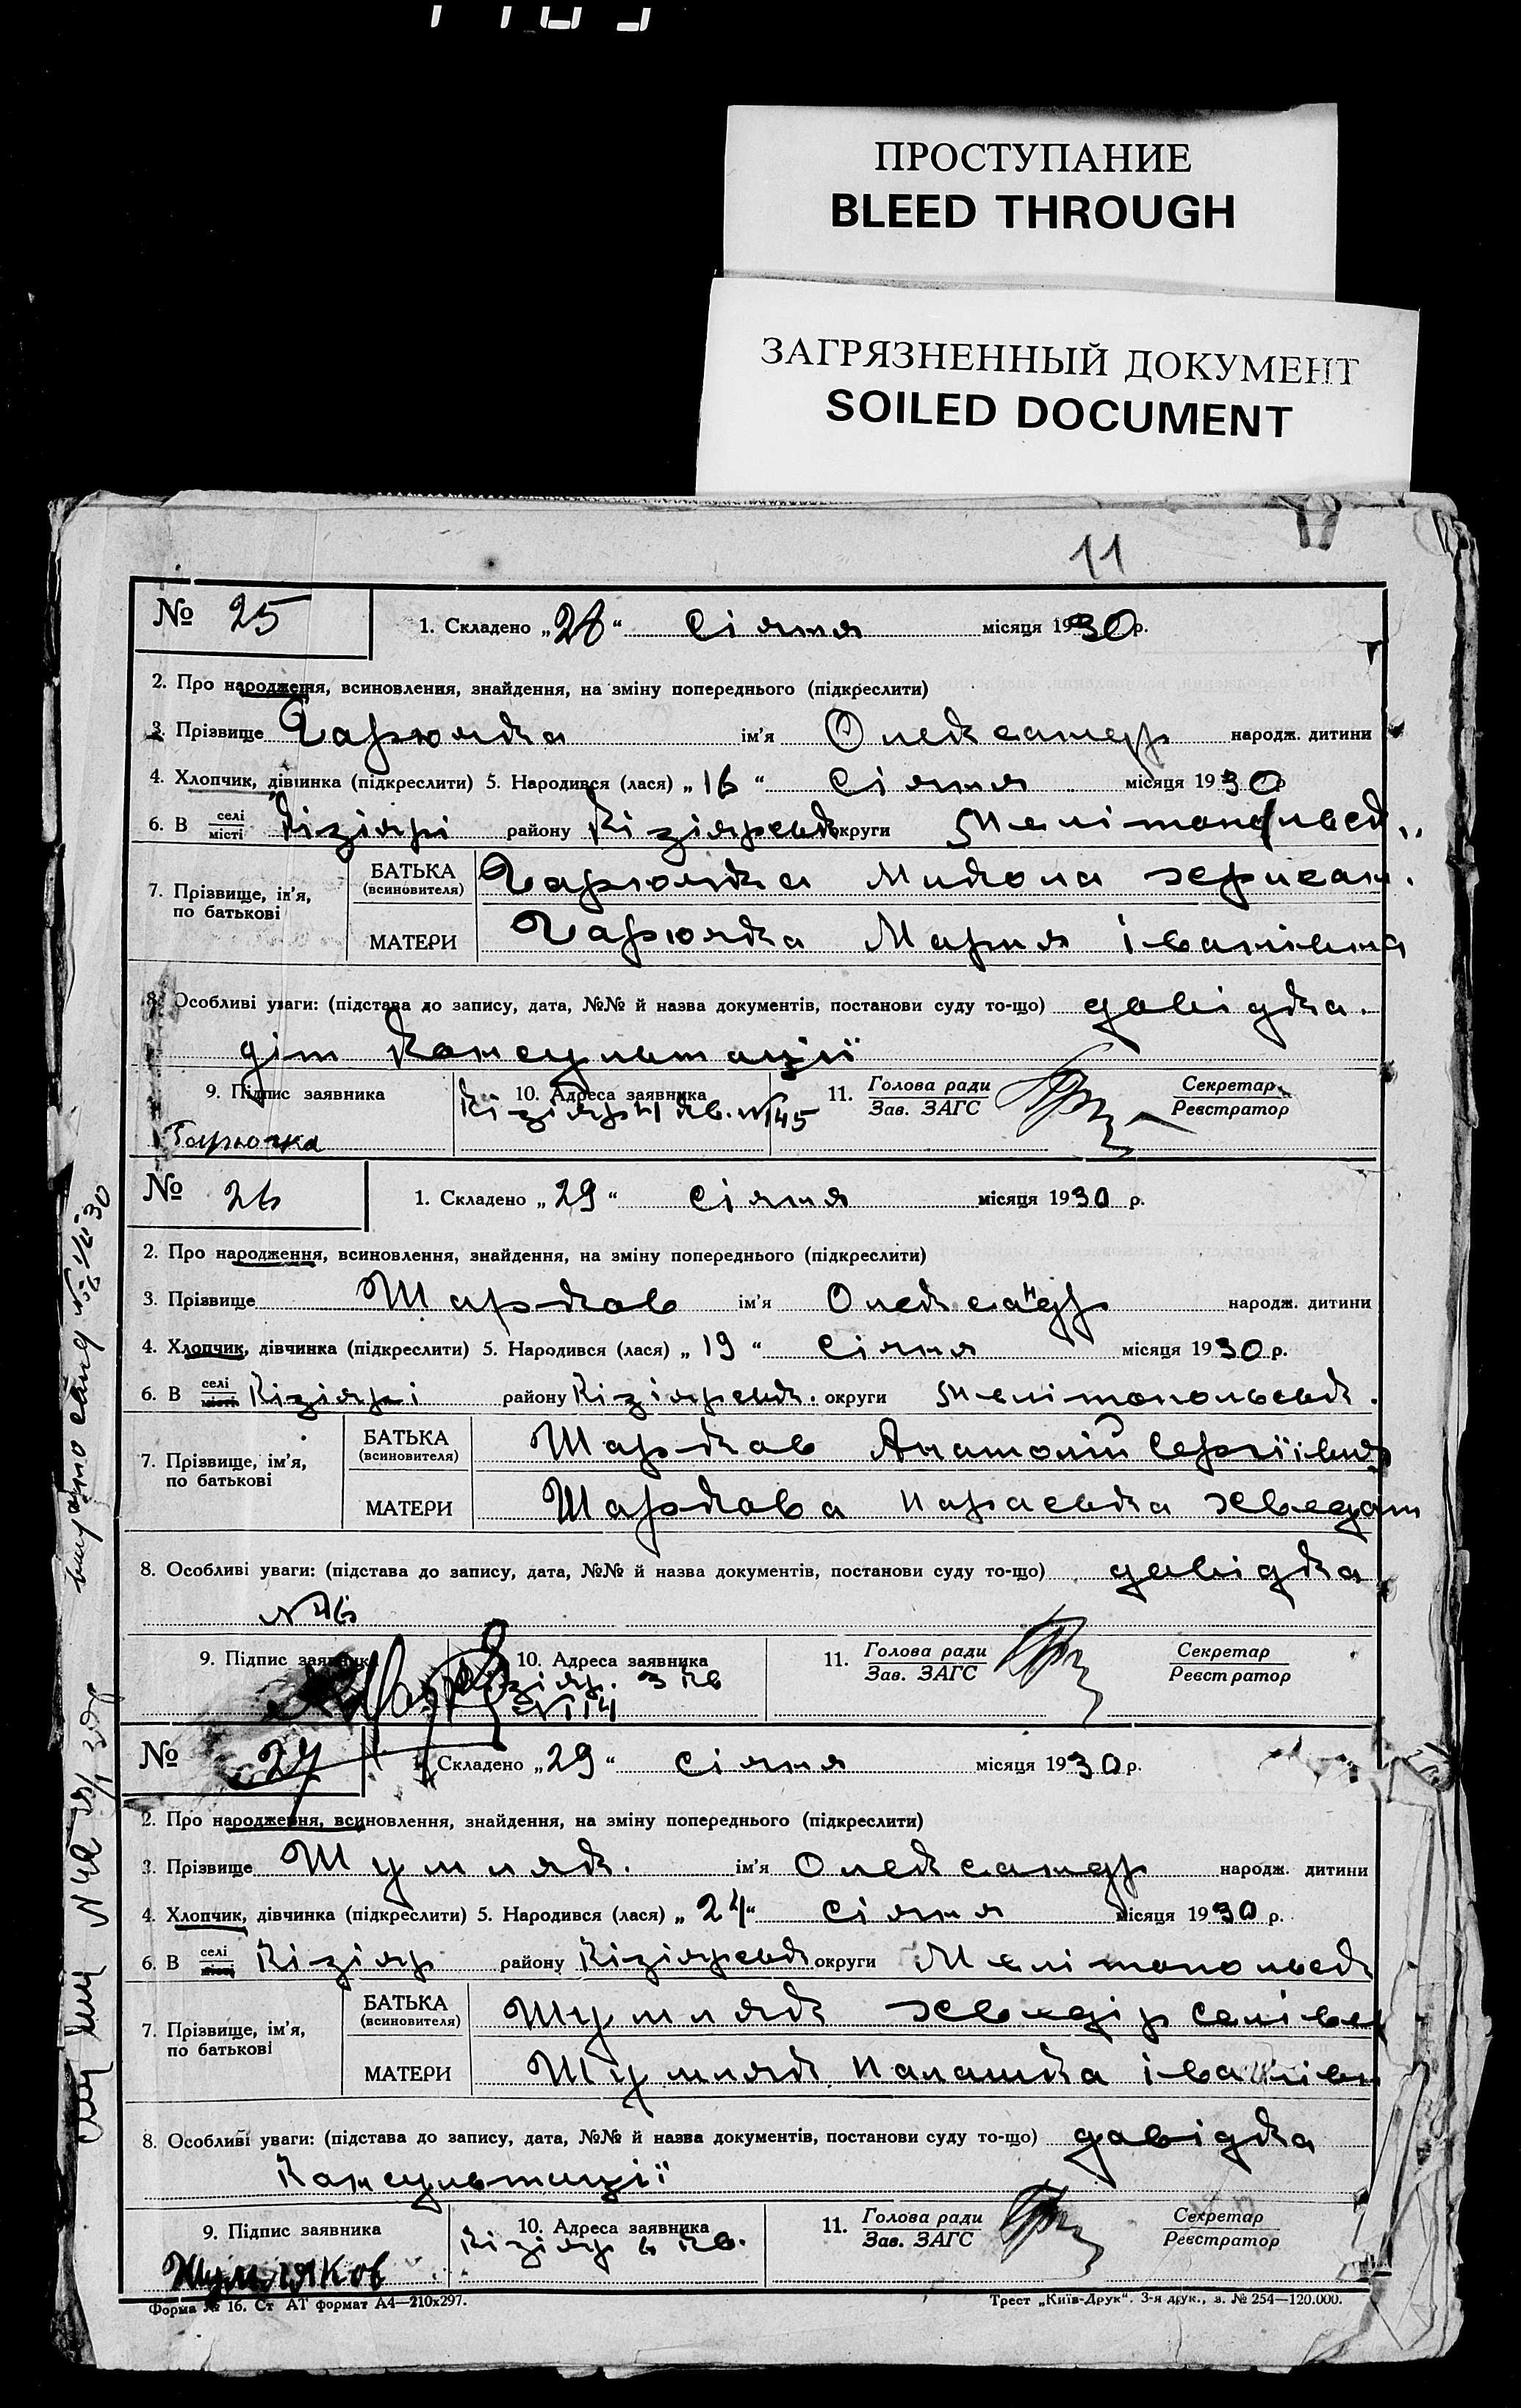 ПРОСТУПАНИЕ
BLEED THROUGH
ЗАГРЯЗНЕННЫЙ ДОКУМЕНТ
SOILED DOCUMENT
11
№ 25 1. Складено „28“ Січня місяця 1930 р.
2. Про народження, всиновлення, знайдення, на зміну попереднього (підкреслити)
3. Прізвище Гарючка ім'я Олександр народж. дитини
4. Хлопчик, дівчинка (підкреслити) 5. Народився (лася) „16“ Січня місяця 1930 р
6. В селі місті Кізіярі району Кізіярськ округи Мелітопольськ.
7. Прізвище, ім'я, по батькові БАТЬКА (всиновителя) Гарючка Микола
МАТЕРИ Гарючка Мария іванівна
8. Особливі уваги: (підстава до запису, дата, №№ й назва документів, постанови суду то-що) довідка
діт консультації
9. Підпис заявника 10. Адреса заявника 11. Голова ради Зав. ЗАГС Секретар Реєстратор
Гарючка Кізіяр 4 кв. №145
№ 26 1. Складено „29“ Січня місяця 1930 р.
2. Про народження, всиновлення, знайдення, на зміну попереднього (підкреслити)
3. Прізвище Шарков ім'я Олександр народж. дитини
4. Хлопчик, дівчинка (підкреслити) 5. Народився (лася) „19“ Січня місяця 1930 р.
6. В селі місті Кізіярі району Кізіярськ. округи Мелітопольськ.
7. Прізвище, ім'я, по батькові БАТЬКА (всиновителя) Шарков Анатолій Сергіїевич
МАТЕРИ Шаркова Параевка
8. Особливі уваги: (підстава до запису, дата, №№ й назва документів, постанови суду то-що) довідка
№46
9. Підпис заявника 10. Адреса заявника 11. Голова ради Зав. ЗАГС Секретар Реєстратор
Кізіяр. 3 кв
№114
№ 27 1. Складено „29“ Січня місяця 1930 р.
2. Про народження, всиновлення, знайдення, на зміну попереднього (підкреслити)
3. Прізвище Шумляк. ім'я Олександр народж. дитини
4. Хлопчик, дівчинка (підкреслити) 5. Народився (лася) „24“ Січня місяця 1930 р.
6. В селі місті Кізіяр району Кізіярськ округи Мелітопольськ
7. Прізвище, ім'я, по батькові БАТЬКА (всиновителя) Шумляк Хведір
МАТЕРИ Шумляк Палашка іванівн
8. Особливі уваги: (підстава до запису, дата, №№ й назва документів, постанови суду то-що) довідка
Консультації
9. Підпис заявника 10. Адреса заявника 11. Голова ради Зав. ЗАГС Секретар Реєстратор
Шумляков Кізіяр 6 кв.
Форма № 16. Ст АТ формат А4—210х297. Трест „Київ-Друк“. 3-я друк., з. № 254—120.000.